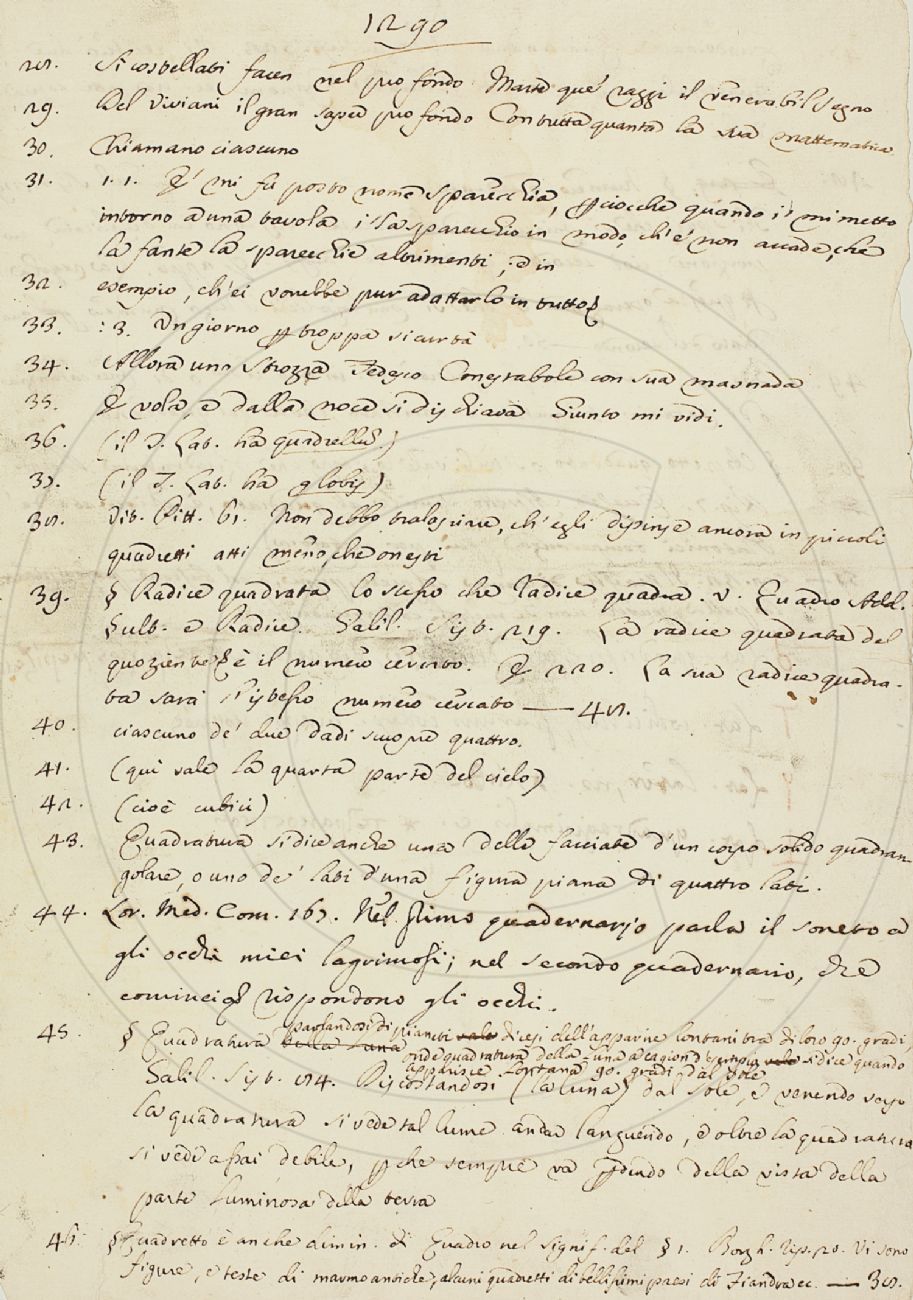 1290
28. Si costellati facen nel profondo Marte que' raggi il venerabil segno
29. Del Viviani il gran saper profondo Con tutta quanta la sua mattematica
30. Chiamano ciascuno
31. 1. 1. E' mi fu posto nome Sparecchia, perciocchè quando i' mi metto
intorno a una tavola i' la sparecchio in modo, ch'e' non accade, che
la fante la sparecchie altrimenti, e in
32. esempio, ch'ei vorrebbe pur adattarlo in tutto
33. : 3. Un giorno per troppa sicurtà
34. Allora uno Strozza Tedesco Conestabole con sua masnada
35. E vola, e dalla noce si dischiava Giunto mi vidi.
36. (il T. Lab. ha quadrellus)
37. (il T. Lab. ha globis)
38. Vit. Pitt. 61. Non debbo tralasciare, ch'egli dipinse ancora in piccoli
quadretti atti meno, che onesti
39. § Radice quadrata lo stesso che Radice quadra. v. Quadro Add.
§ ult. e Radice. Galil. Sist. 219. La radice quadrata del
quoziente è il numero cercato. E 220. La sua radice quadra-
ta sarà l'istesso numero cercato — 48.
40. ciascuno de' due dadi scuopre quattro.
41. (quì vale la quarta parte del cielo)
42. (cioè cubici)
43. Quadratura si dice anche una delle facciate d'un corpo solido quadran-
golare, o uno de' lati d'una figura piana di quattro lati.
44. Lor. Med. Com. 167. Nel primo quadernario parla il sonetto a
gli occhi miei lagrimosi; nel secondo quadernario, che
comincia rispondono gli occhi.
45. § Quadratura della Luna parlandosi di pianeti vale dicesi dell'apparire lontani tra di loro 90. gradi,
onde quadratura della Luna a cagion d'esempio vale si dice quando
apparisce lontana 90. gradi dal sole
Galil. Sist. 84. Discostandosi (la luna) dal sole, e venendo verso
la quadratura si vede tal lume andar languendo, e oltre la quadratura
si vede assai debile, perche sempre va perdendo della vista della
parte luminosa della terra
46. § Quadretto è anche dimin. di Quadro nel signif. del § 1. Borgh. Rip. 20. Vi sono
figure, e teste di marmo antiche, alcuni quadretti di bellissimi paesi di Fiandra ec. — 38.